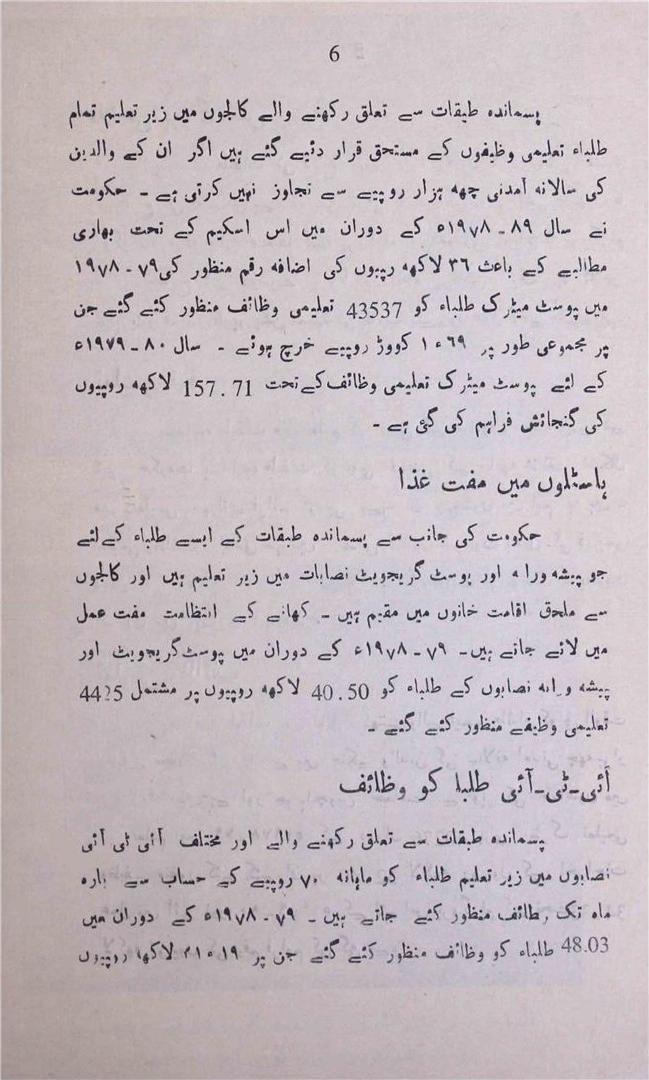 6
پسماندہ طبقات سے تعلق رکھنے والے کالجوں میں زیر تعلیم تمام
طلباء تعلیمی وظیفوں کے مستحق قرار دئیے گئے ہیں اگر ان کے والدین
کی سالانہ آمدنی چھہ ہزار روپیے سے تجاوز نہیں کرتی ہے ۔ حکومت
نے سال ۸۹ ۔ ۱۹۷۸ء کے دوران میں اس اسکیم کے تحت بھاری
مطالبے کے باعث ۳۶ لاکھہ روپیوں کی اضافہ رقم منظور کی ۷۹ ۔ ۱۹۷۸
میں پوسٹ میٹرک طلباء کو 43537 تعلیمی وظائف منظور کئے گئے جن
پر مجموعی طور پر ۶۹ء۱ کروڑ روپیے خرچ ہوئے ۔ سال ۸۰ ۔ ۱۹۷۹ء
کے لئے پوسٹ میٹرک تعلیمی وظائف کے تحت 157.71 لاکھہ روپیوں
کی گنجائش فراہم کی گئی ہے ۔
ہاسٹلوں میں مفت غذا
حکومت کی جانب سے پسماندہ طبقات کے ایسے طلباء کے لئے
جو پیشہ ورانہ اور پوسٹ گریجویٹ نصابات میں زیر تعلیم ہیں اور کالجوں
سے ملحق اقامت خانوں میں مقیم ہیں ۔ کھانے کے انتظامت مفت عمل
میں لائے جاتے ہیں ۔ ۷۹ ۔ ۱۹۷۸ء کے دوران میں پوسٹ گریجویٹ اور
پیشہ ورانہ نصابوں کے طلباء کو 40.50 لاکھہ روپیوں پر مشتمل 4425
تعلیمی وظیفے منظور کئے گئے ۔
آئی ۔ ٹی ۔ آئی طلبا کو وظائف
پسماندہ طبقات سے تعلق رکھنے والے اور مختلف آئی ٹی آئی
نصابوں میں زیر تعلیم طلباء کو ماہانہ ۷۰ روپیے کے حساب سے بارہ
ماہ تک وظائف منظور کئے جاتے ہیں ۔ ۷۹ ۔ ۱۹۷۸ء کے دوران میں
48.03 طلباء کو وظائف منظور کئے گئے جن پر ۱۹ء لاکھہ روپیوں